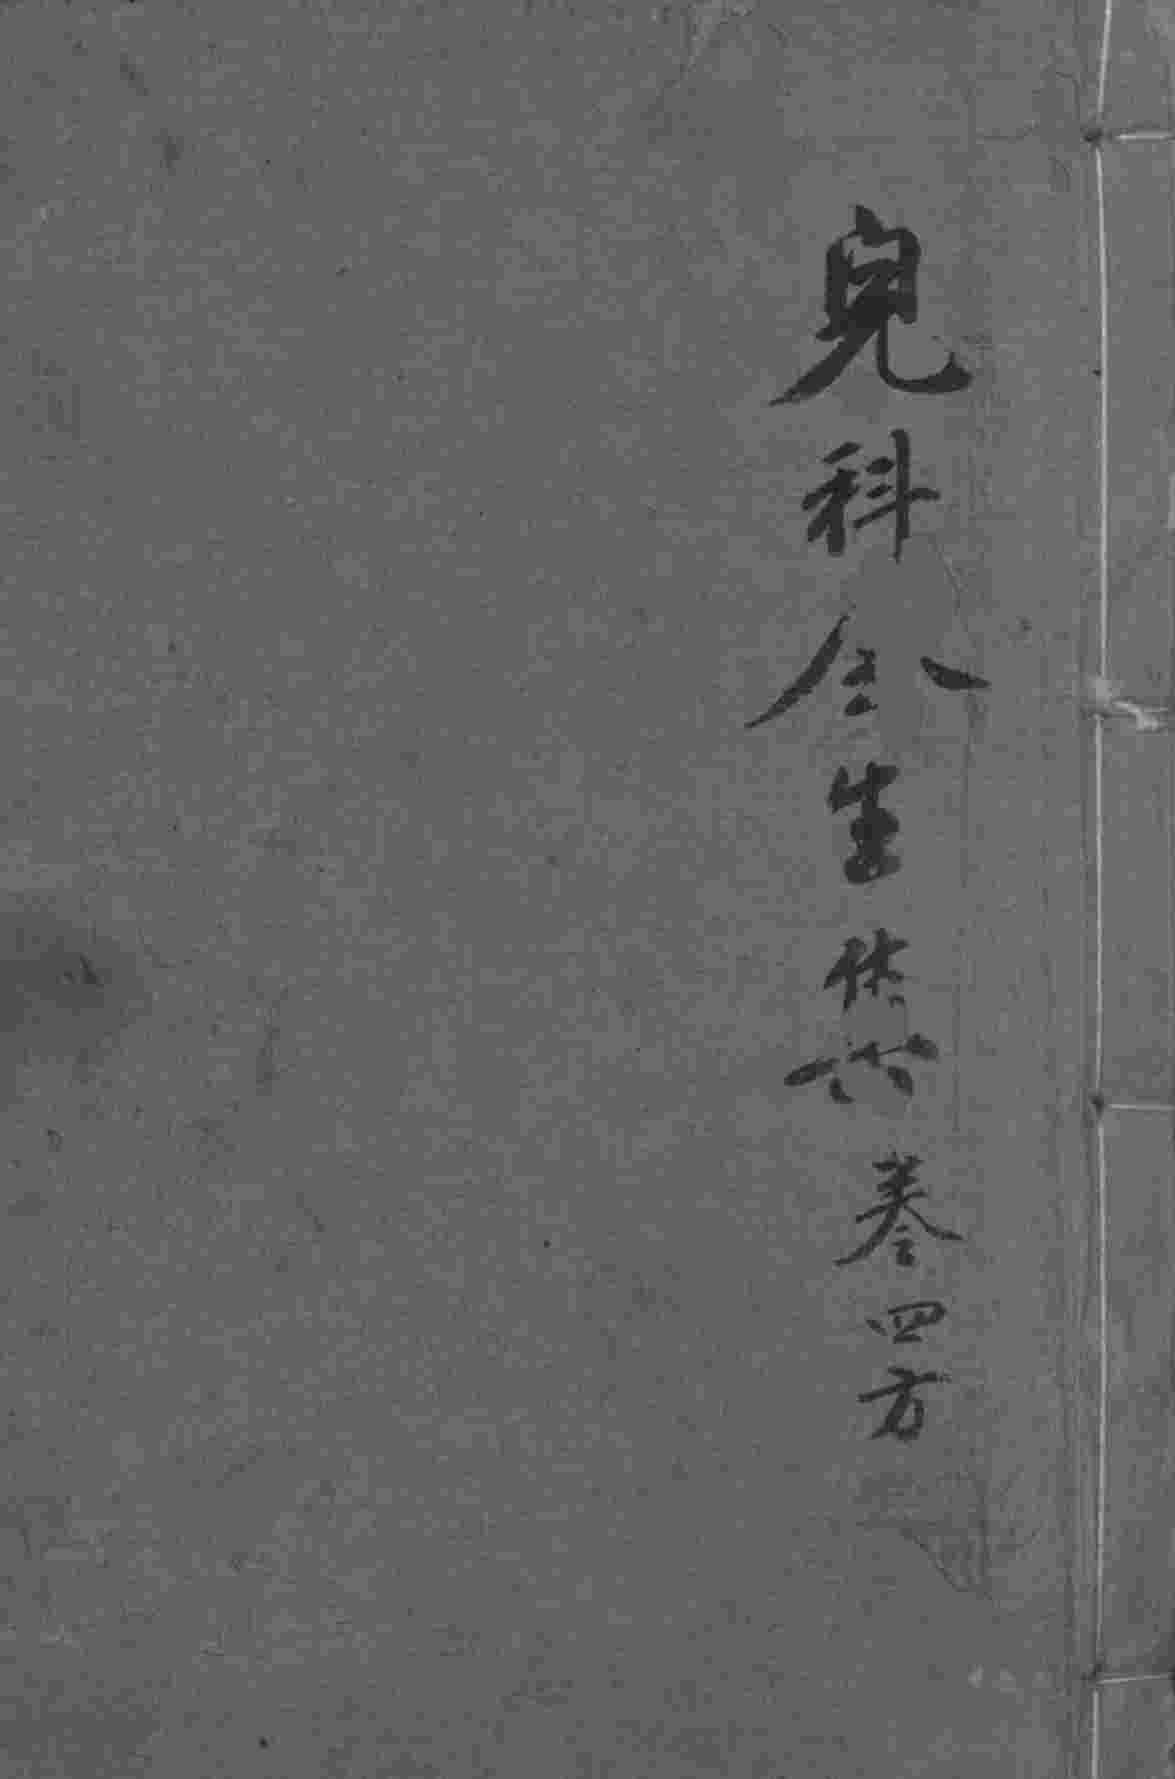 兒科全生集卷四方